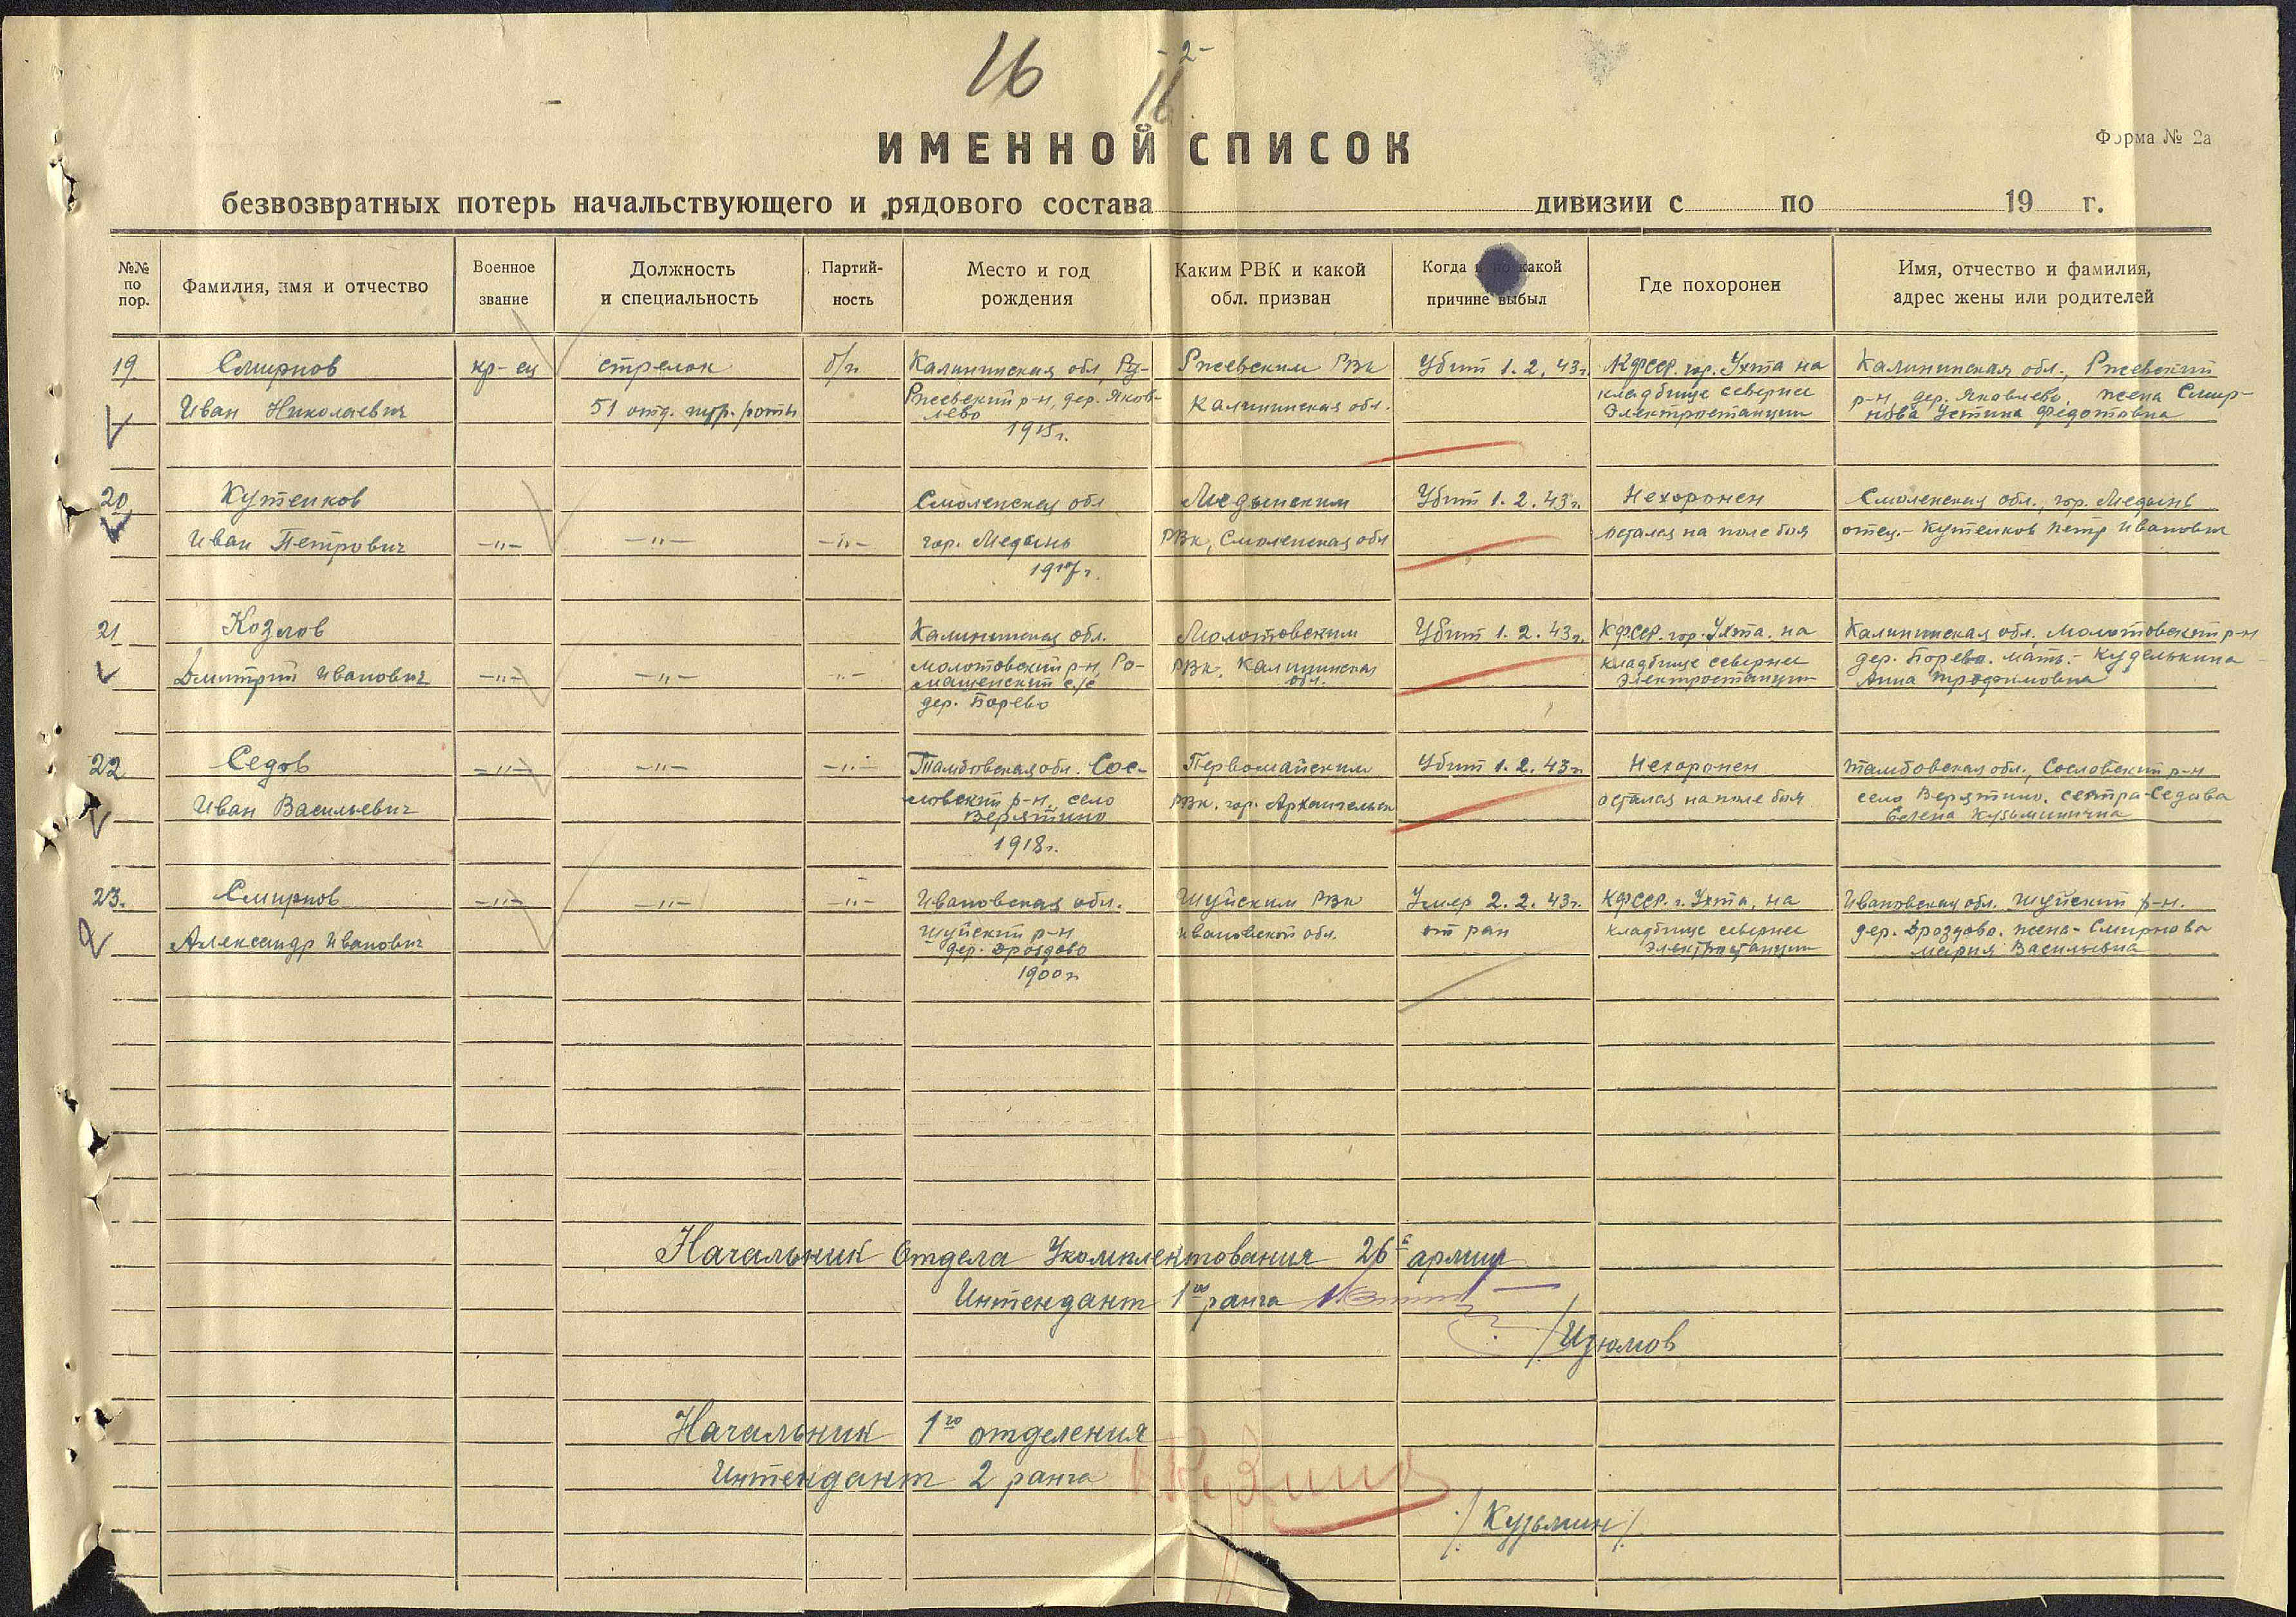 16
- 2 -
16
ИМЕННОЙ СПИСОК
Форма № 2а
безвозвратных потерь начальствующего и рядового состава дивизии с по 19 г.
№№ по пор.
Фамилия, имя и отчество
Военное звание
Должность и специальность
Партийность
Место и год рождения
Каким РВК и какой обл. призван
Когда и по какой причине выбыл
Где похоронен
Имя, отчество и фамилия, адрес жены или родителей
19. Смирнов кр-ец стрелок б/п Калининская обл, Ржевским РВК Убит 1.2.43г. КФССР. гор. Ухта на Калининская обл., Ржевский
Иван Николаевич 51 отд. штр. роты Ржевский р-н, дер. Яков- Калининская обл. кладбище севернее р-н, дер. Яковлево, жена Смир-
лево электростанции нова Устина Федотовна
1915г.
20 Кутенков Смоленская обл Медынским Убит 1.2.43г. Нехоронен Смоленская обл., гор. Медынь
Иван Петрович -"- -"- -"- гор. Медынь РВК, Смоленская обл остался на поле боя отец - Кутенков Петр Иванович
1917г.
21 Козлов Калининская обл. Молотовским Убит 1.2.43г. КФССР. гор. Ухта. на Калининская обл. Молотовский р-н
Дмитрий Иванович -"- -"- -"- Молотовский р-н, Ро- РВК, Калининская кладбище севернее дер. Борево. мать - Куделькина
машенский с/с обл. электростанции Анна Трофимовна
дер. Борево
22 Седов -"- -"- -"- Тамбовская обл. Сос- Первомайским Убит 1.2.43г. Нехоронен Тамбовская обл., Сословский р-н
Иван Васильевич ловский р-н, село РВК. гор. Архангельск остался на поле боя село Верятино. сестра Седова
Верятино Елена Кузьминична
1918г.
23. Смирнов -"- -"- -"- Ивановская обл. Шуйским РВК Умер 2.2.43г. КФССР. г. Ухта, на Ивановская обл. Шуйский р-н.
Александр Иванович Шуйский р-н Ивановской обл. от ран кладбище севернее дер. Дроздово. жена - Смирнова
дер. Дроздово электростанции Мария Васильевна
1900г
Начальник Отдела Укомплектования 26й армии
Интендант 1го ранга
/Изюмов
Начальник 1го отделения
Интендант 2 ранга
/Кузьмин/